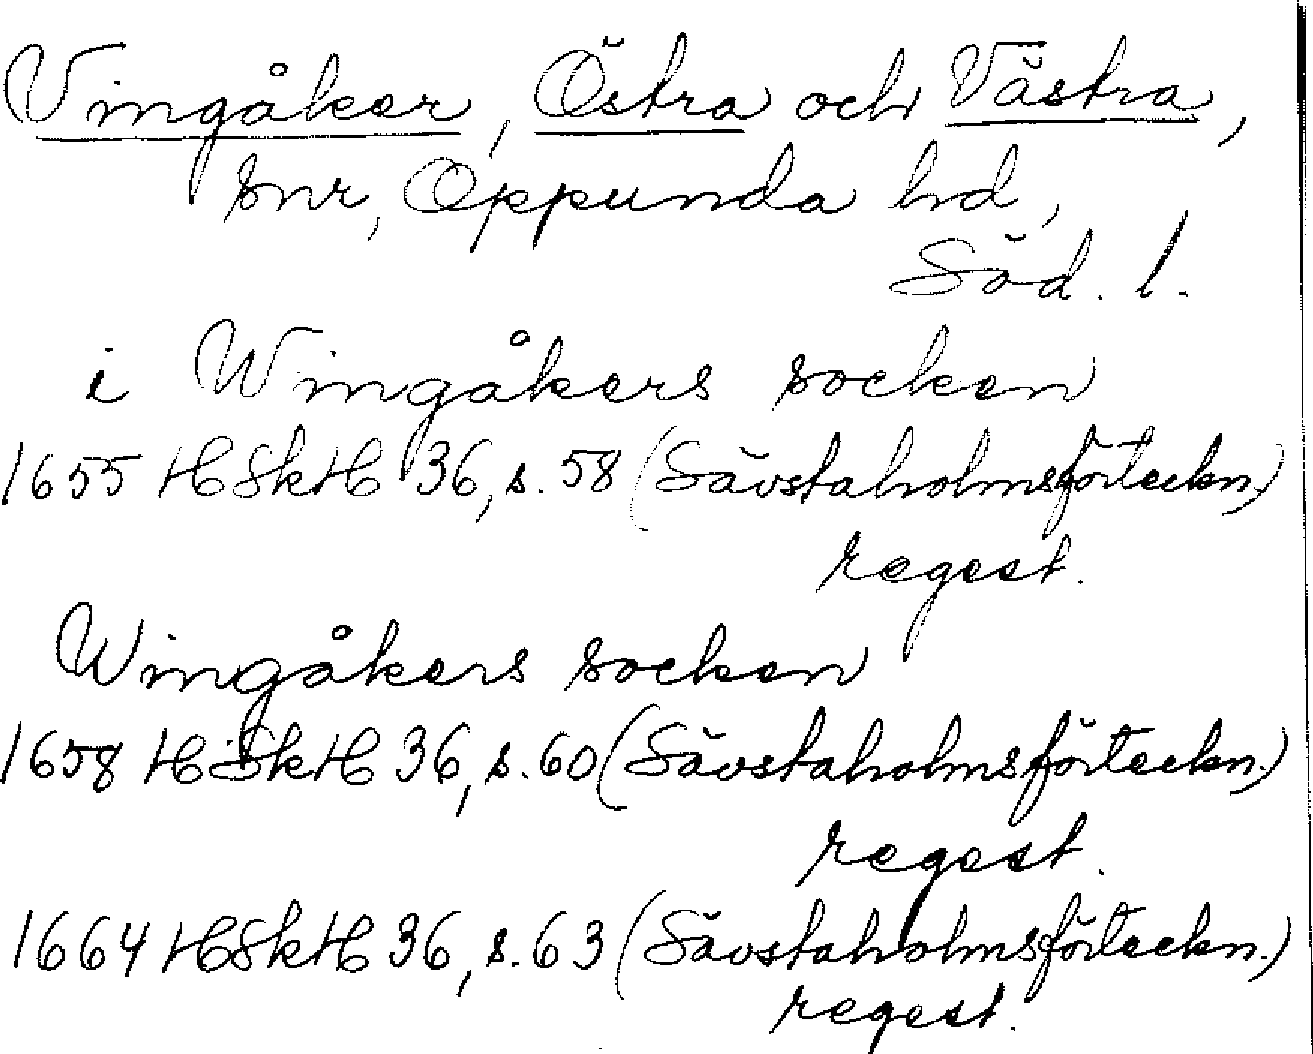 Vingåker, Östra och Västra,
snr, Oppunda hd,
Söd. l.
i Wingåkers socken
1655 HSkH 36, s. 58 (Sävstaholmsförteckn.)
regest.
Wingåkers socken
1658 HSkH 36, s. 60 (Sävstaholmsförteckn.)
regest.
1664 HSkH 36, s. 63 (Sävstaholmsförteckn.)
regest.